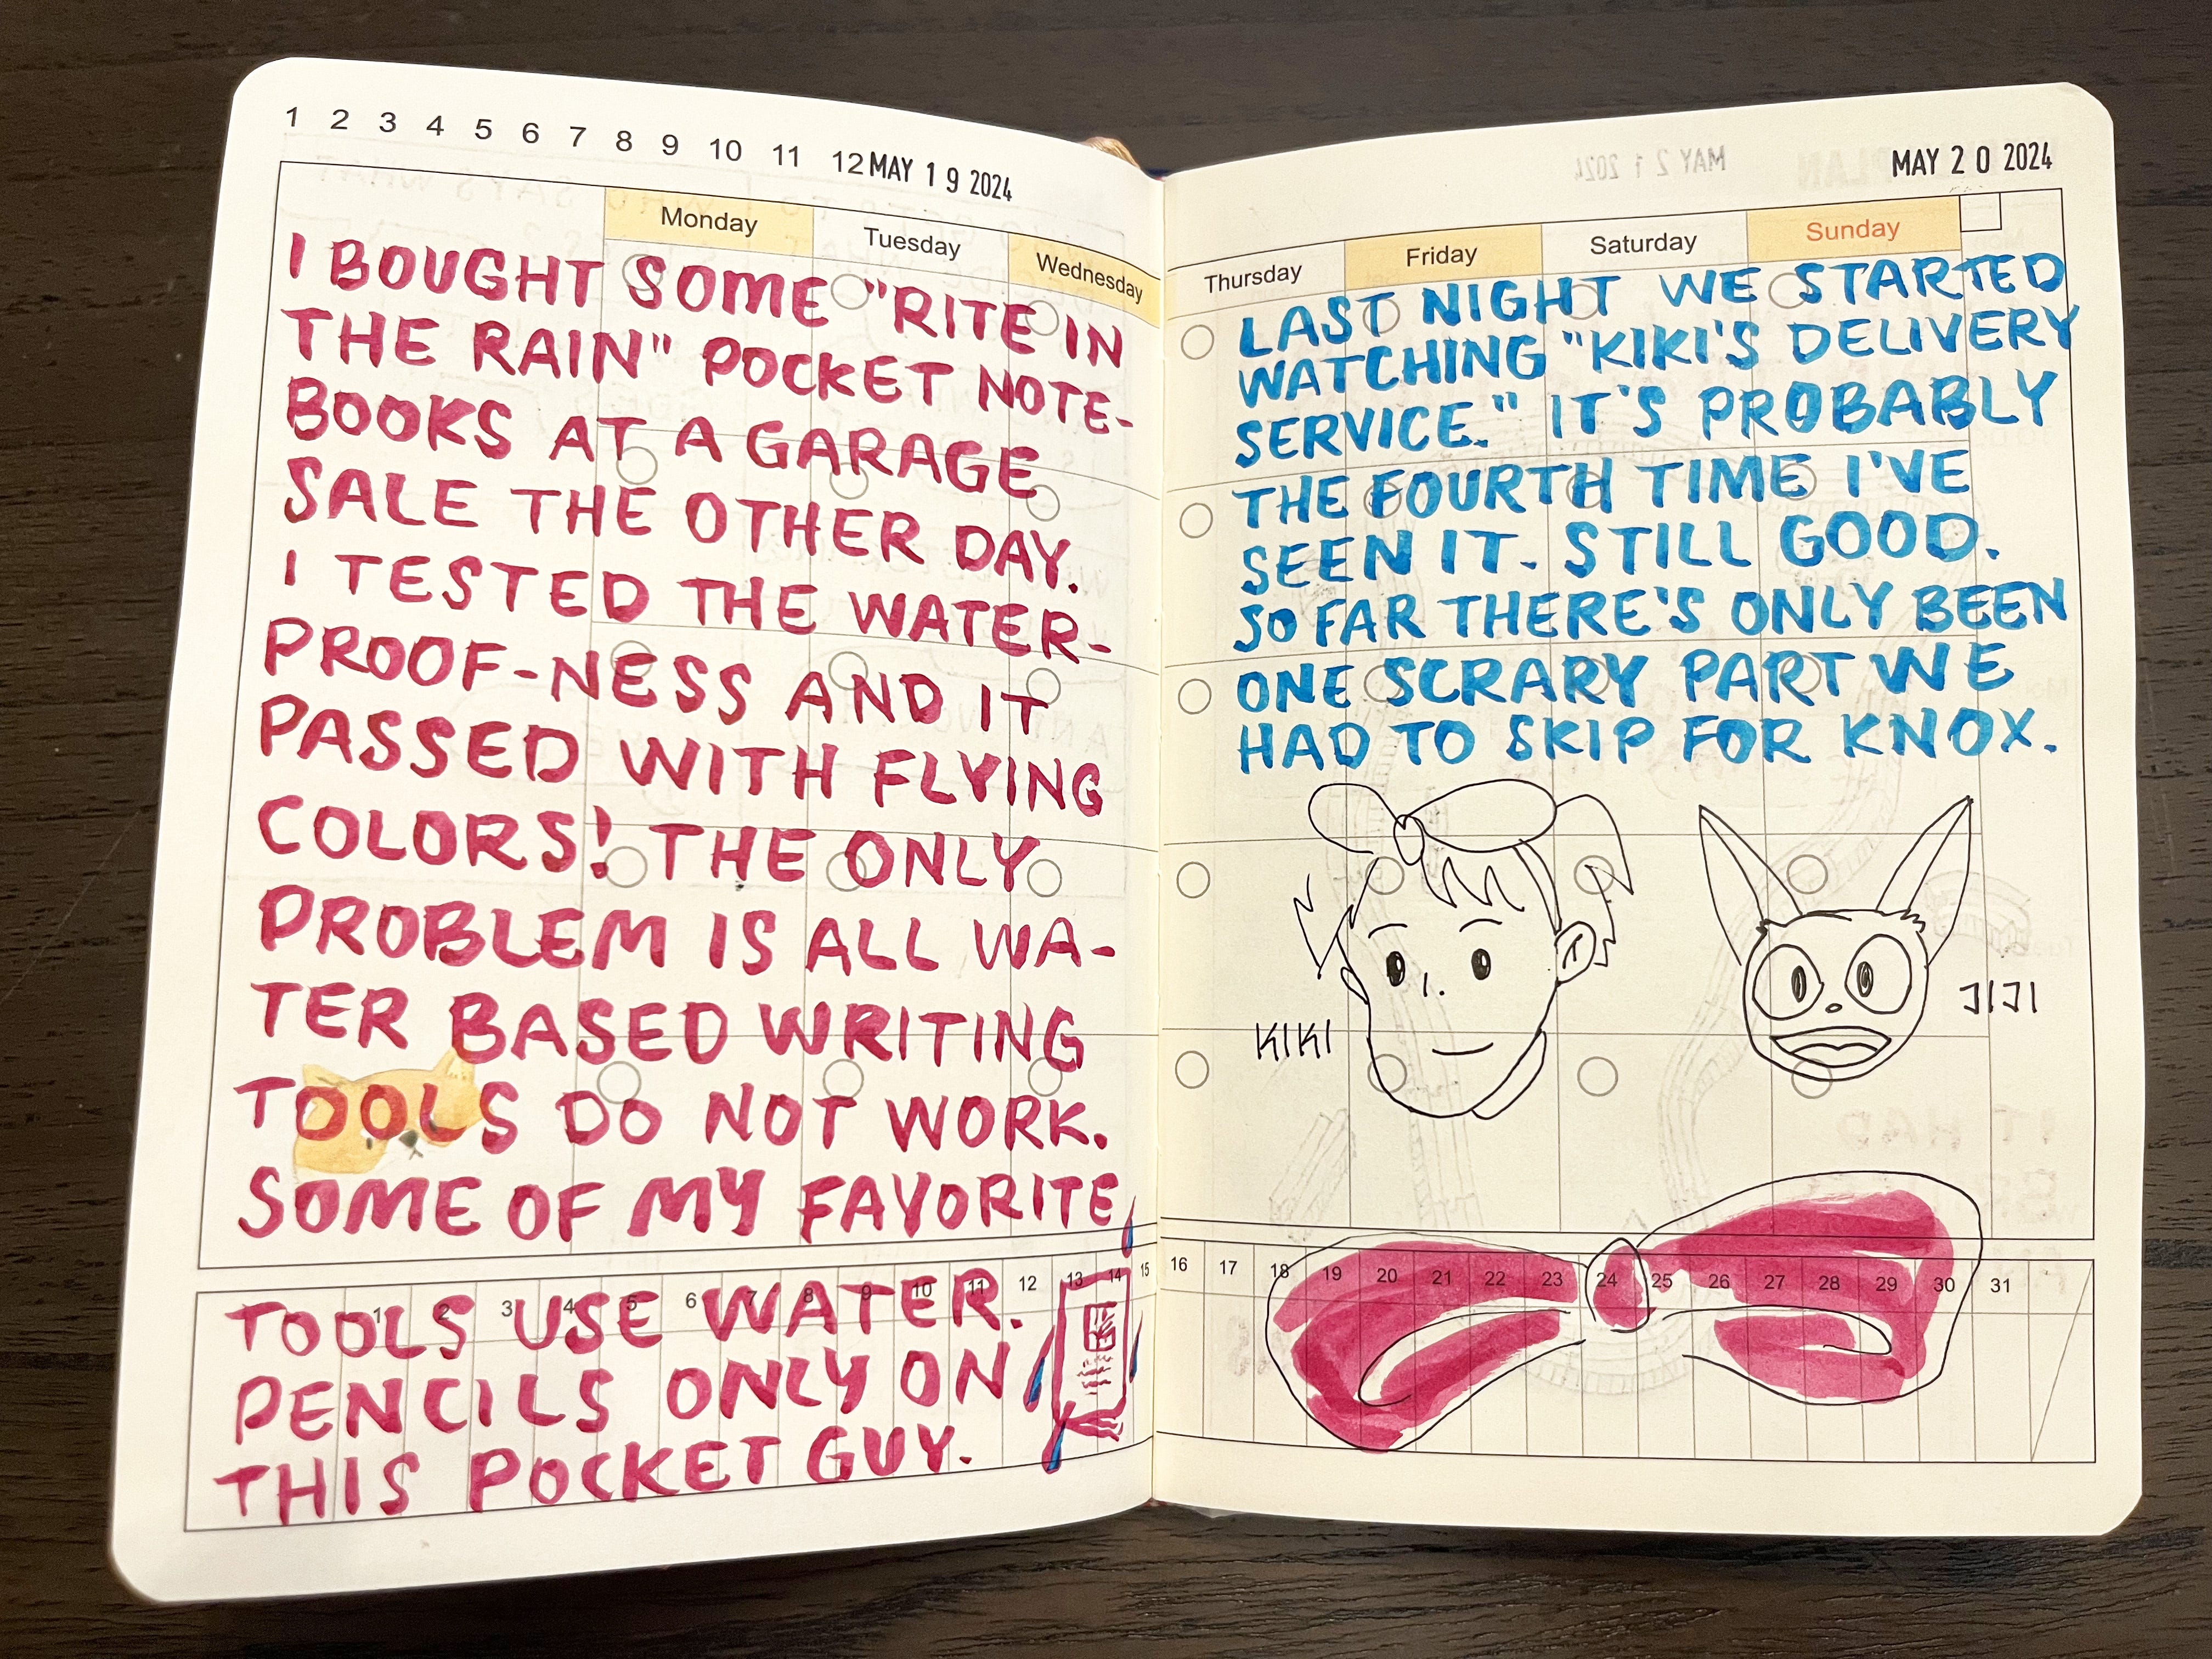 1 2 3 4 5 6 7 8 9 10 11 12 MAY 19 2024
Monday Tuesday Wednesday
I BOUGHT SOME "RITE IN
THE RAIN" POCKET NOTE-
BOOKS AT A GARAGE
SALE THE OTHER DAY.
I TESTED THE WATER-
PROOF-NESS AND IT
PASSED WITH FLYING
COLORS! THE ONLY
PROBLEM IS ALL WA-
TER BASED WRITING
TOOLS DO NOT WORK.
SOME OF MY FAVORITE
1 2 3 4 5 6 7 8 9 10 11 12 13 14 15
TOOLS USE WATER.
PENCILS ONLY ON
THIS POCKET GUY.
MAY 21 2024
MAY 20 2024
Thursday Friday Saturday Sunday
LAST NIGHT WE STARTED
WATCHING "KIKI'S DELIVERY
SERVICE." IT'S PROBABLY
THE FOURTH TIME I'VE
SEEN IT. STILL GOOD.
SO FAR THERE'S ONLY BEEN
ONE SCRARY PART WE
HAD TO SKIP FOR KNOX.
KIKI
JIJI
16 17 18 19 20 21 22 23 24 25 26 27 28 29 30 31